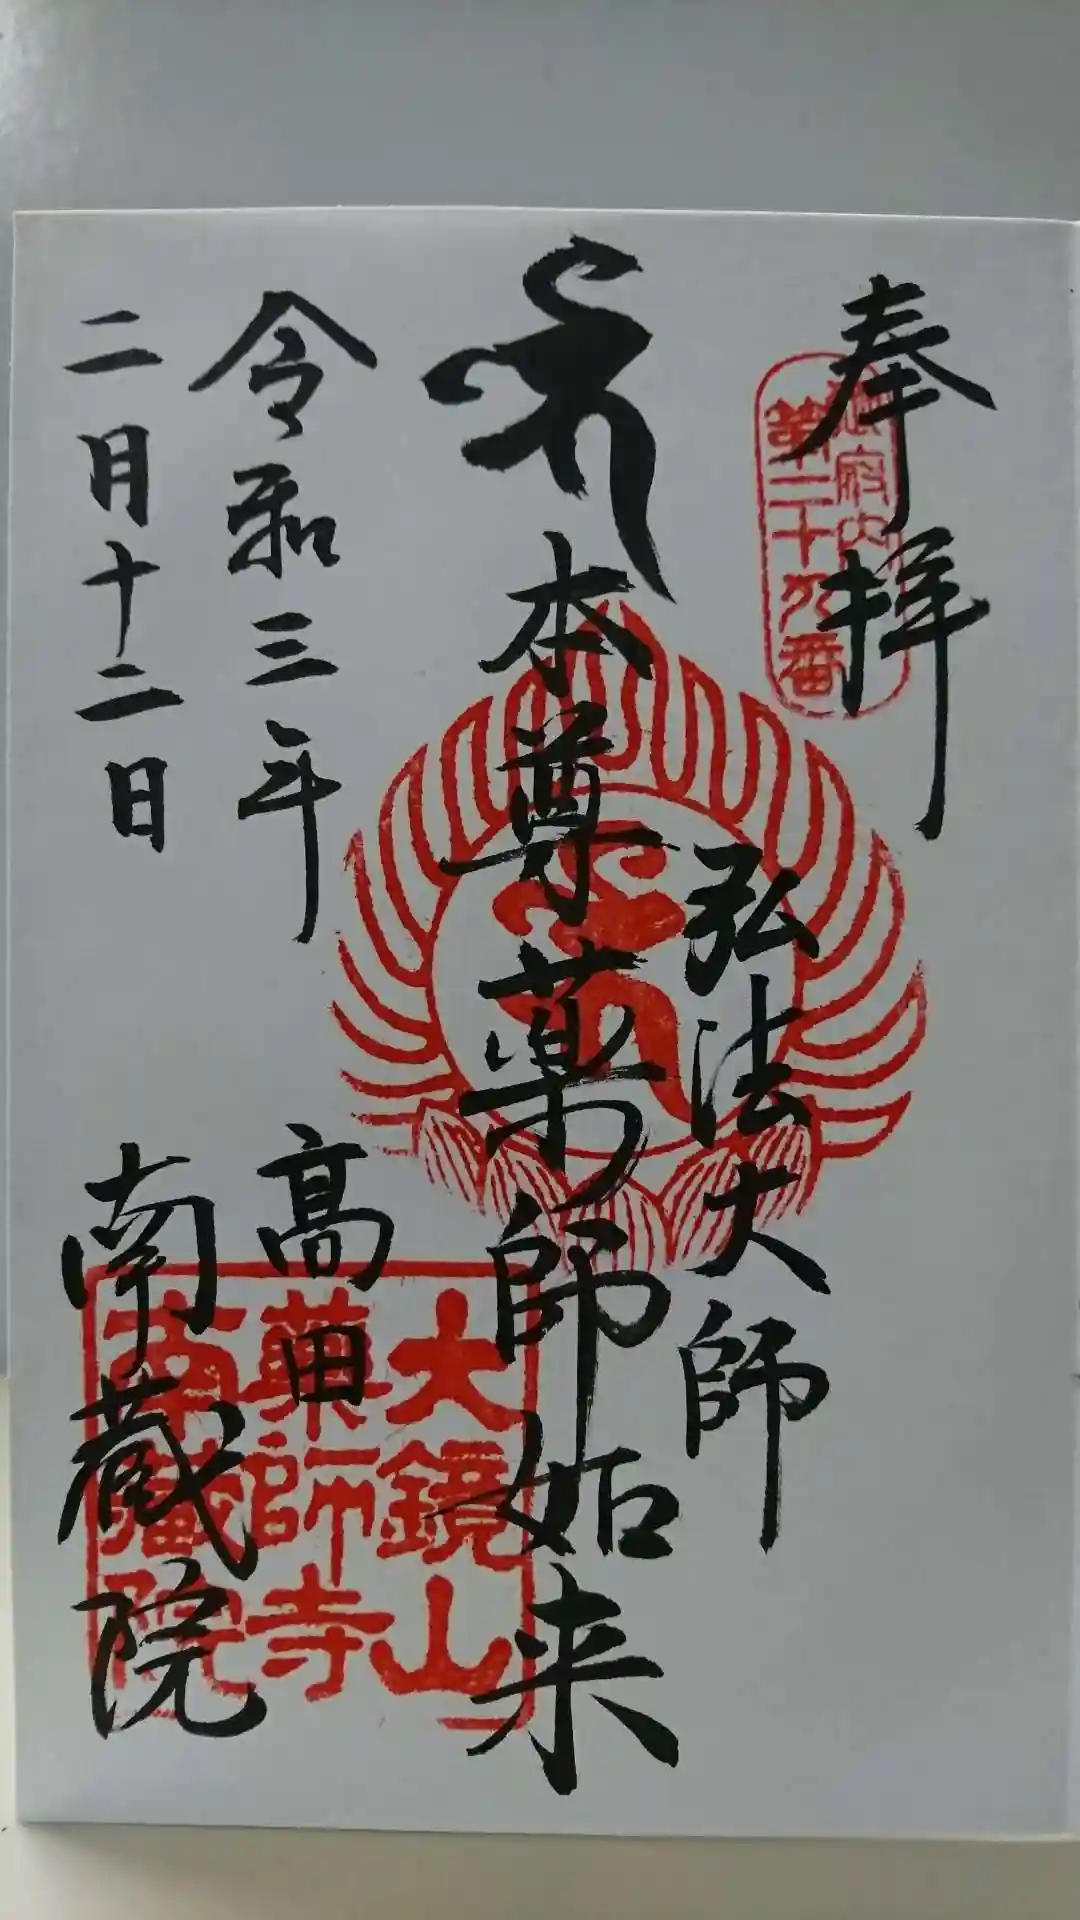 奉拝
御府内
第二十九番
弘法大師
本尊薬師如来
令和三年
二月十二日
高田
南蔵院
大鏡山
薬師寺
南蔵院